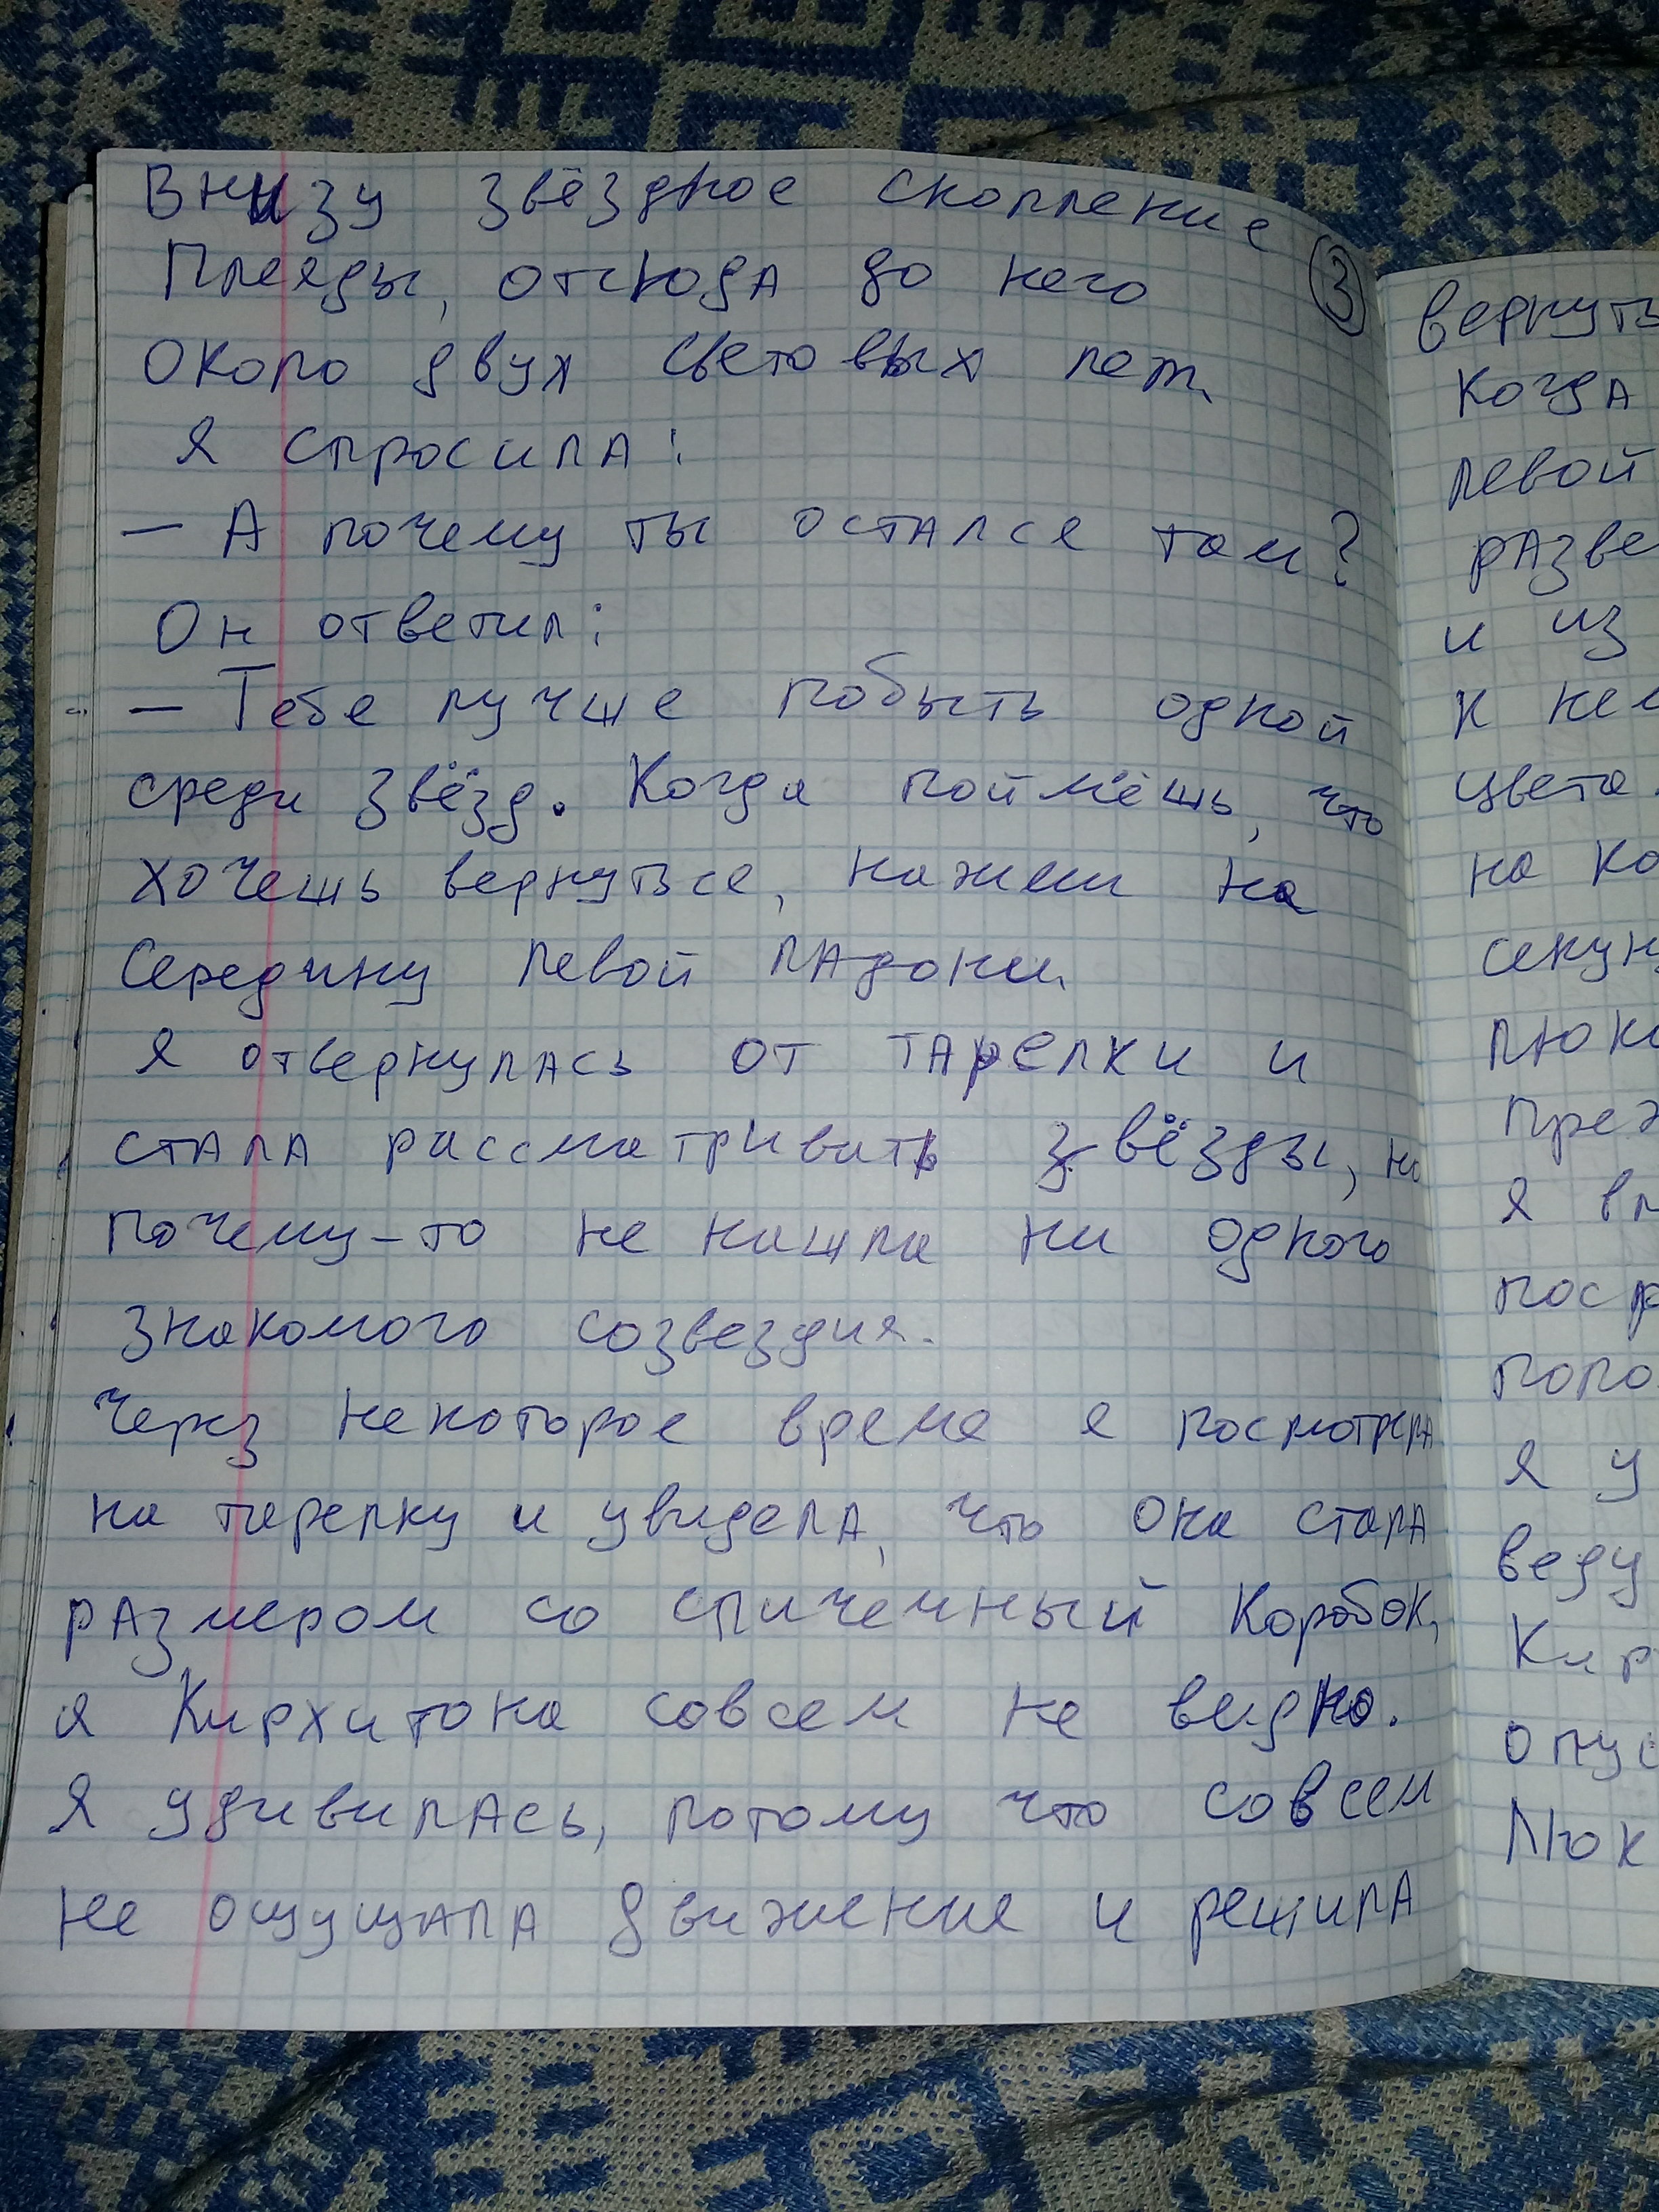 Внизу звёздное скопление
3
Плеяды, отсюда до него
около двух световых лет.
Я спросила:
– А почему ты остался там?
Он ответил:
– Тебе лучше побыть одной
среди звёзд. Когда поймёшь, что
хочешь вернуться, нажми на
середину левой ладони.
Я отвернулась от тарелки и
стала рассматривать звёзды, но
почему-то не нашла ни одного
знакомого созвездия.
Через некоторое время я посмотрела
на тарелку и увидела, что она стала
размером со спичечный коробок,
а Кирхитона совсем не видно.
Я удивилась, потому что совсем
не ощущала движение и решила
вернуть
когда
левой
разве
и из
к нем
цвета.
на ко
секун
люк
пред
я вл
поср
поло
я у
веду
Кир
опус
Люк